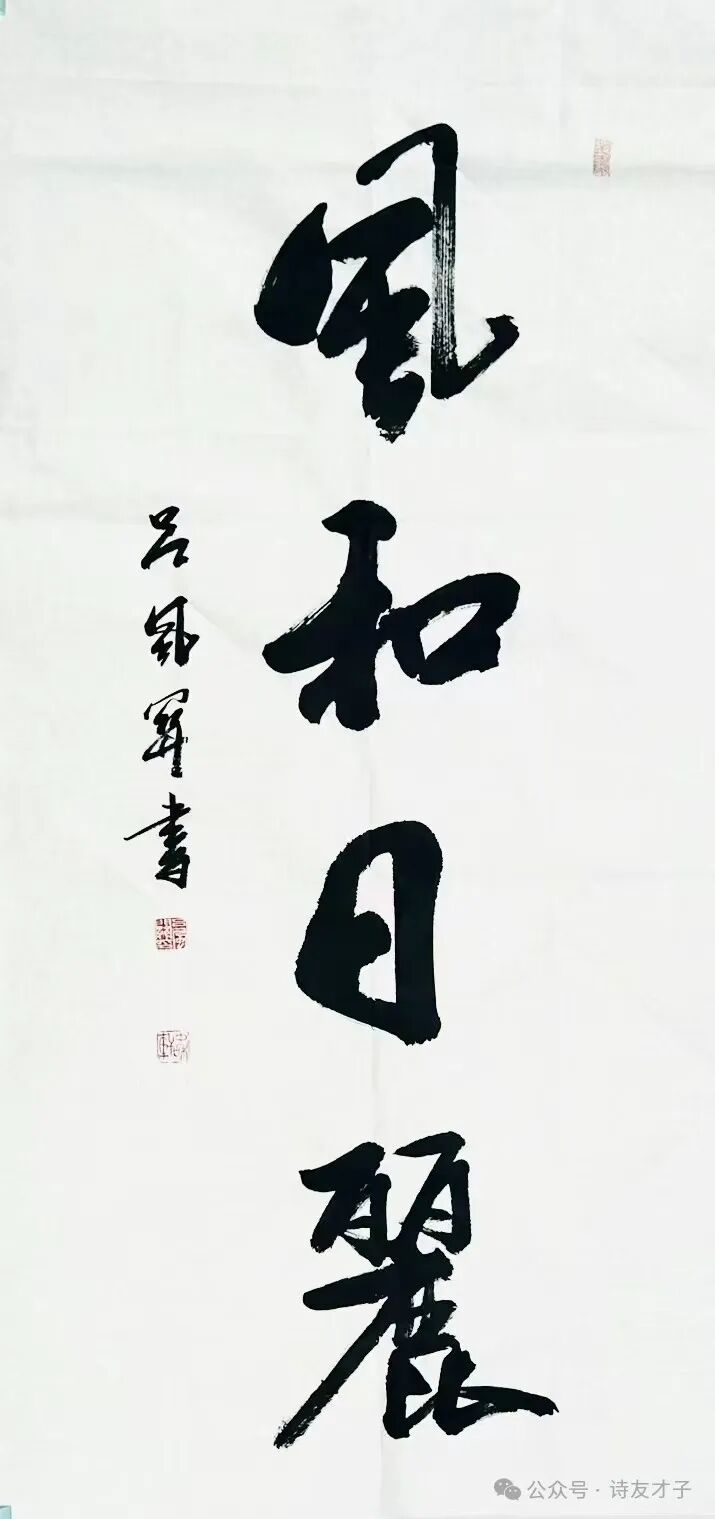 風和日麗
吕
書
公众号·诗友才子